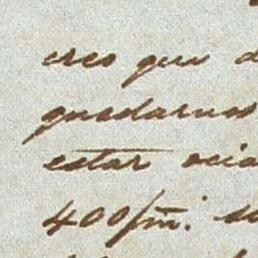 creo que
quedarnos
estar ocio
400 fm.